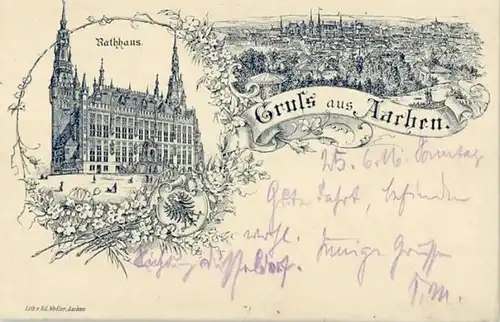 Rathhaus.
Gruss aus Aachen.
25. 6. Sonntag
Gute Fahrt, befinden
wohl. Innige Grüsse
Düsseldorf. T. M.
Lith. v. Ed. Weller, Aachen